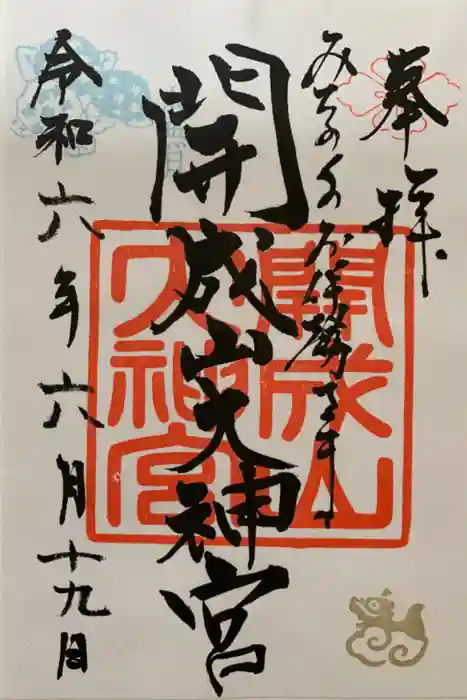 奉拝
みちのくのお伊勢さま
開成山大神宮
令和六年六月十九日
開成山大神宮